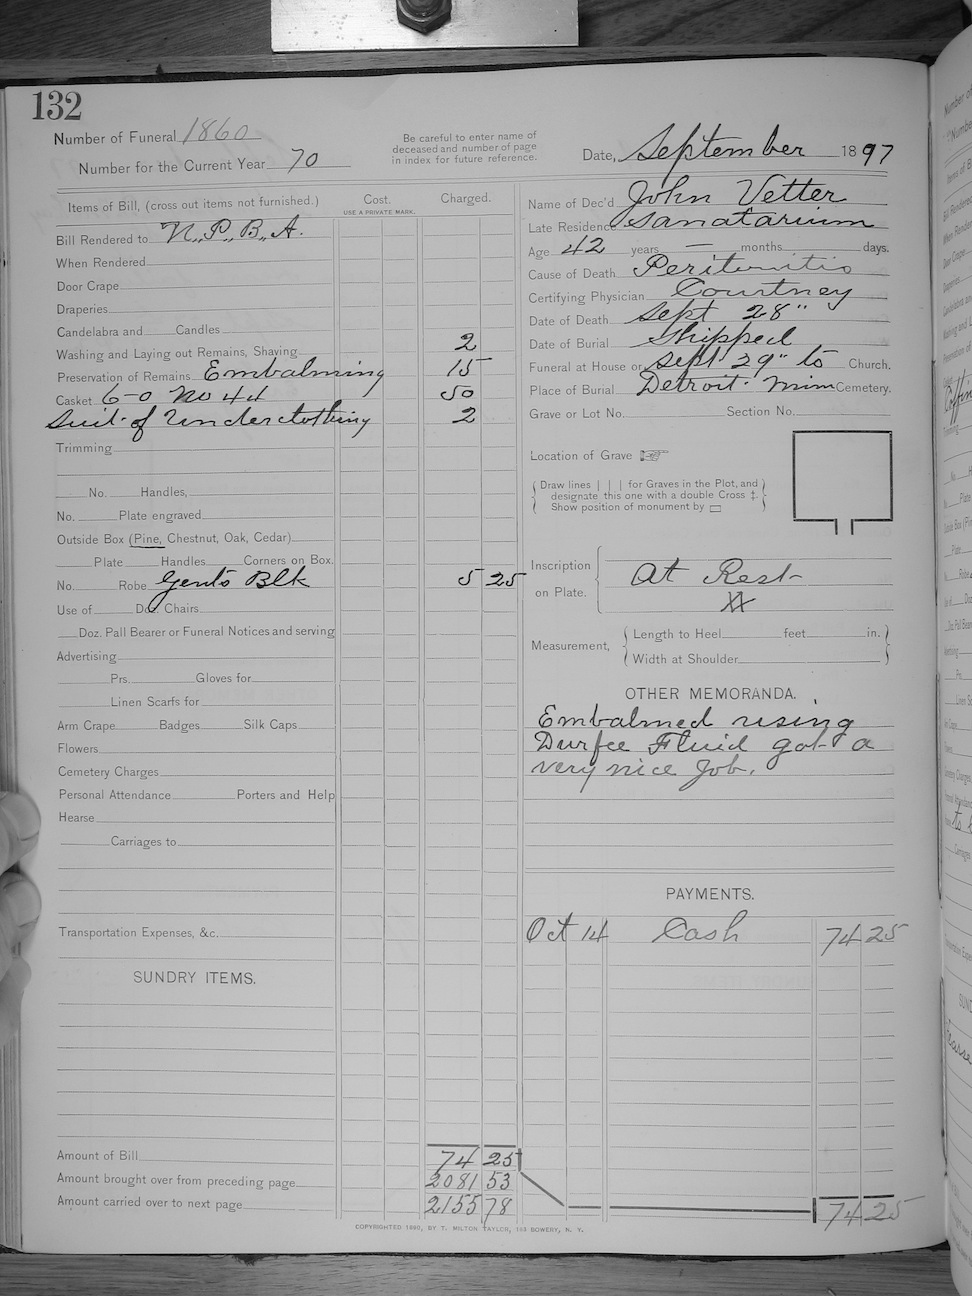 132
Number of Funeral 1860
Number for the Current Year 70
Be careful to enter name of
deceased and number of page
in index for future reference.
Date, September 1897
Items of Bill, (cross out items not furnished.) Cost. Charged.
USE A PRIVATE MARK.
Bill Rendered to N.,P.,B.,A.
When Rendered
Door Crape
Draperies
Candelabra and Candles
Washing and Laying out Remains, Shaving 2
Preservation of Remains Embalming 15
Casket 6-0 No 44 50
Suit of Underclothing 2
Trimming
No. Handles,
No. Plate engraved
Outside Box (Pine, Chestnut, Oak, Cedar)
Plate Handles Corners on Box.
No. Robe Gent's Blk 5 25
Use of Doz. Chairs
Doz. Pall Bearer or Funeral Notices and serving
Advertising
Prs. Gloves for
Linen Scarfs for
Arm Crape Badges Silk Caps
Flowers
Cemetery Charges
Personal Attendance Porters and Help
Hearse
Carriages to
Transportation Expenses, &c.
SUNDRY ITEMS.
Amount of Bill 74 25
Amount brought over from preceding page 2081 53
Amount carried over to next page 2155 78
Name of Dec'd John Vetter
Late Residence Sanatarium
Age 42 years — months days.
Cause of Death Peritonitis
Certifying Physician Courtney
Date of Death Sept 28"
Date of Burial Shipped
Funeral at House or Sept 29" to Church.
Place of Burial Detroit. Minn Cemetery.
Grave or Lot No. Section No.
Location of Grave
Draw lines | | | for Graves in the Plot, and
designate this one with a double Cross ‡.
Show position of monument by
Inscription
on Plate.
At Rest
Measurement,
Length to Heel feet in.
Width at Shoulder
OTHER MEMORANDA.
Embalmed using
Durfee Fluid got a
very nice Job.
PAYMENTS.
Oct 14 Cash 74 25
74 25
COPYRIGHTED 1890, BY T. MILTON TAYLOR, BOWERY, N. Y.